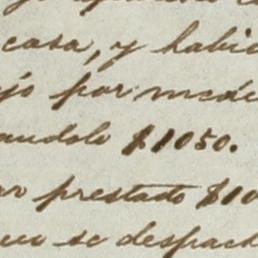 casa, y habi
jo por medi
andolo $1050.
ar prestado $10
se despach